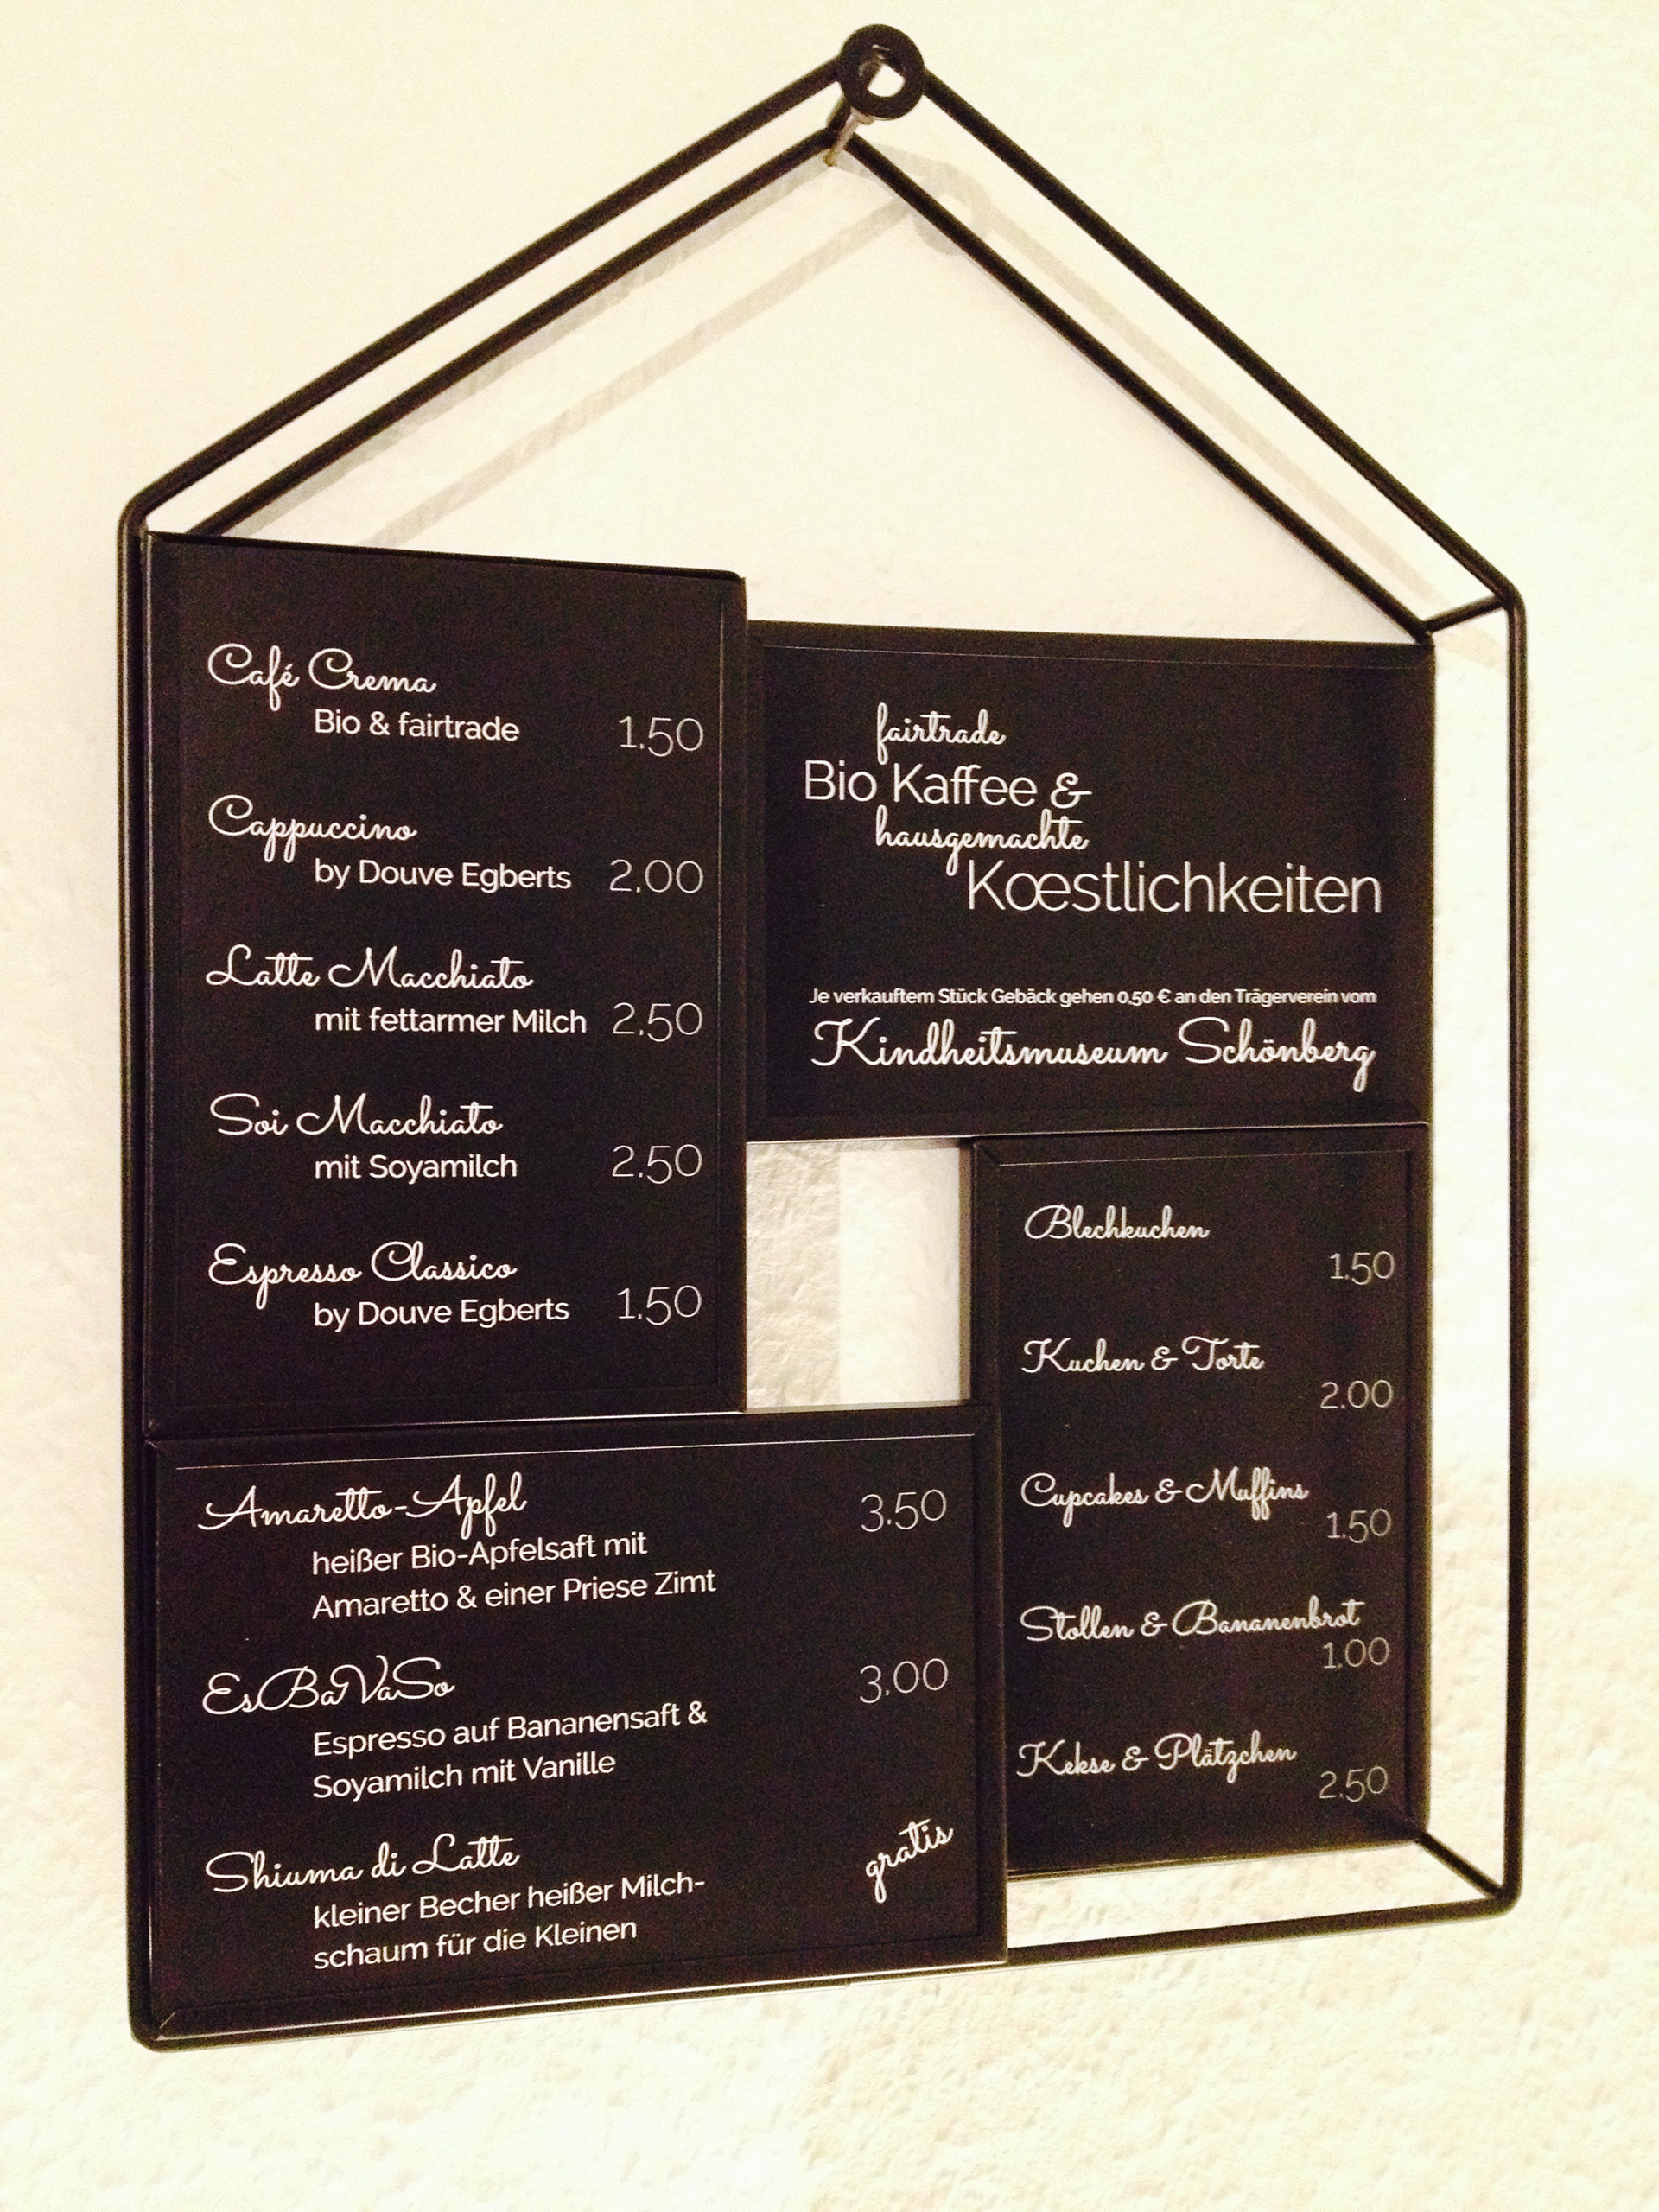 Café Crema
Bio & fairtrade 1.50
Cappuccino
by Douve Egberts 2.00
Latte Macchiato
mit fettarmer Milch 2.50
Soi Macchiato
mit Soyamilch 2.50
Espresso Classico
by Douve Egberts 1.50
fairtrade
Bio Kaffee &
hausgemachte
Kœstlichkeiten
Je verkauftem Stück Gebäck gehen 0,50 € an den Trägerverein vom
Kindheitsmuseum Schönberg
Amaretto-Apfel 3.50
heißer Bio-Apfelsaft mit
Amaretto & einer Priese Zimt
EsBaVaSo 3.00
Espresso auf Bananensaft &
Soyamilch mit Vanille
Shiuma di Latte gratis
kleiner Becher heißer Milch-
schaum für die Kleinen
Blechkuchen
1.50
Kuchen & Torte
2.00
Cupcakes & Muffins
1.50
Stollen & Bananenbrot
1.00
Kekse & Plätzchen
2.50